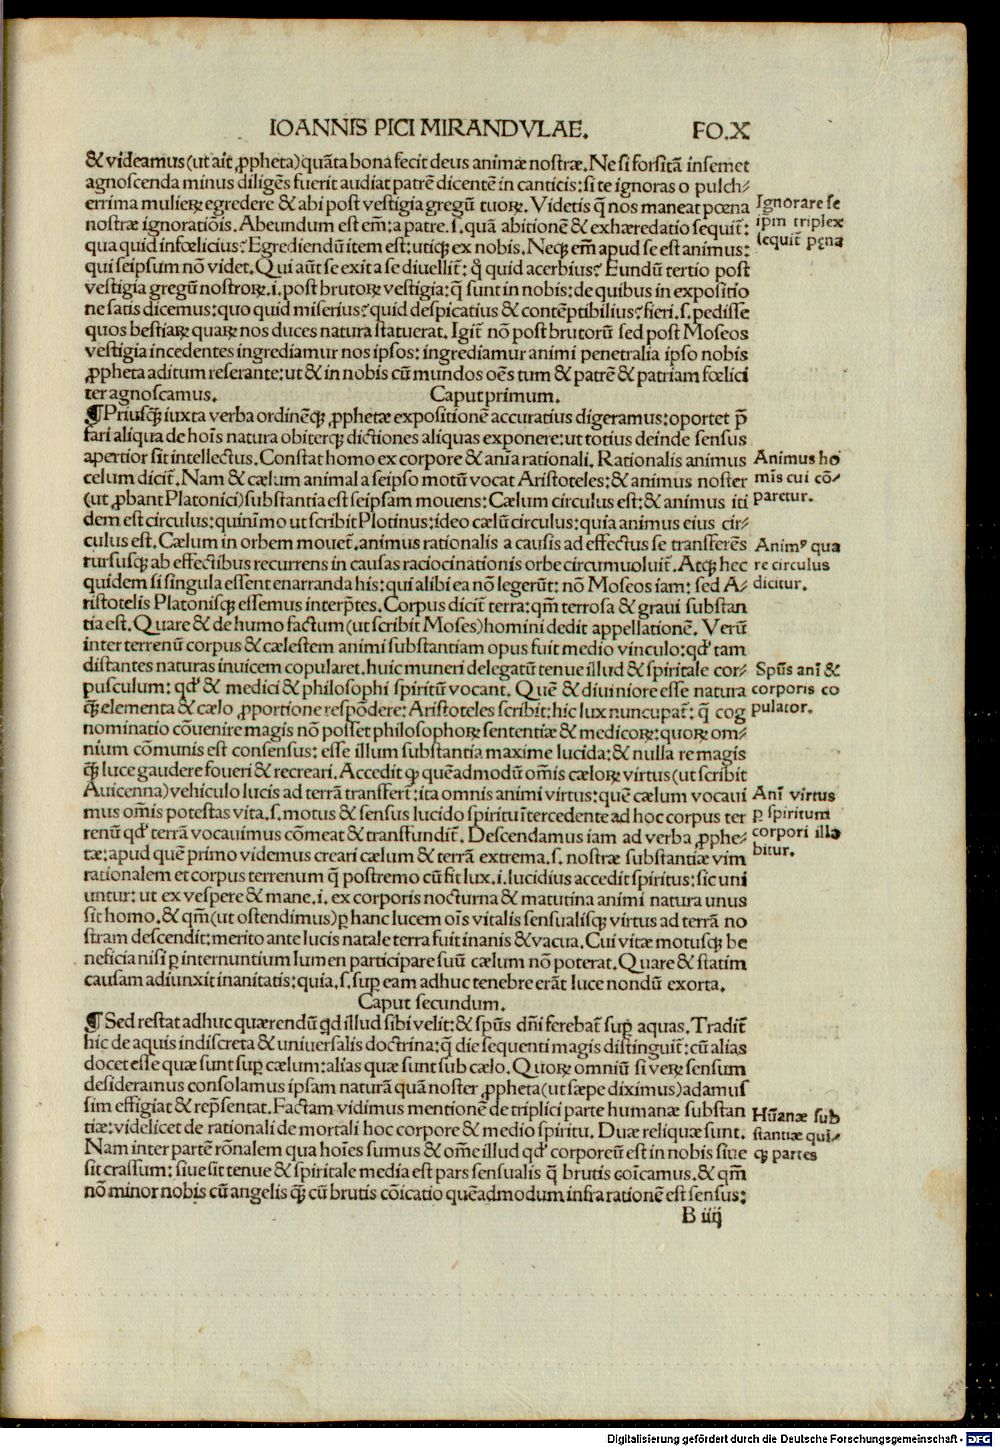 IOANNIS PICI MIRANDVLAE. FO.X
& videamus (ut ait ꝓpheta) quāta bona fecit deus animæ nostræ. Ne si forsitā insemet
agnoscenda minus diligēs fuerit audiat patrē dicentē in canticis: si te ignoras o pulch⸗
errima mulieꝝ egredere & abi post vestigia gregū tuoꝝ. Videtis q̄ nos maneat pœna
nostræ ignoratiōis. Abeundum est em̄: a patre. ſ. quā abitionē & exhæredatio sequit̄:
qua quid infœlicius? Egrediendū item est: utiqꝫ ex nobis. Neqꝫ em̄ apud se est animus:
qui seipsum nō videt. Qui aūt se exit a se diuellit̄: q̊ quid acerbius? Eundū tertio post
vestigia gregū nostroꝝ. i. post brutoꝝ vestigia: q̄ sunt in nobis: de quibus in expositio
ne satis dicemus: quo quid miserius? quid despicatius & contēptibilius? fieri. ſ. pedisse
quos bestiaꝝ quaꝝ nos duces natura statuerat. Igit̄ nō post brutorū sed post Moseos
vestigia incedentes ingrediamur nos ipsos: ingrediamur animi penetralia ipso nobis
ꝓpheta aditum reserante: ut & in nobis cū mundos oēs tum & patrē & patriam fœlici
ter agnoscamus. Caput primum.
¶ Priusqꝫ iuxta verba ordinēqꝫ ꝓphetæ expositionē accuratius digeramus: oportet p̄
fari aliqua de hoīs natura obiterqꝫ dictiones aliquas exponere: ut totius deinde sensus
apertior sit intellectus. Constat homo ex corpore & anīa rationali. Rationalis animus
celum dicit̄. Nam & cælum animal a seipso motū vocat Aristoteles: & animus noster
(ut ꝓbant Platonici) substantia est seipsam mouens: Cælum circulus est: & animus iti
dem est circulus: quinīmo ut scribit Plotinus: ideo cælū circulus: quia animus eius cir⸗
culus est. Cælum in orbem mouet̄. animus rationalis a causis ad effectus se transferēs
rursusqꝫ ab effectibus recurrens in causas raciocinationis orbe circumuoluit̄. Atqꝫ hec
quidem si singula essent enarranda his: qui alibi ea nō legerūt: nō Moseos iam: sed A⸗
ristotelis Platonisqꝫ essemus interp̄tes. Corpus dicit̄ terra: qm̄ terrosa & graui substan
tia est. Quare & de humo factum (ut scribit Moses) homini dedit appellationē. Verū
inter terrenū corpus & cælestem animi substantiam opus fuit medio vinculo: qd' tam
distantes naturas inuicem copularet. huic muneri delegatū tenue illud & spiritale cor⸗
pusculum: qd' & medici & philosophi spiritū vocant. Quē & diuiniore esse natura
qꝫ elementa & cælo ꝓportione respōdere: Aristoteles scribit: hic lux nuncupat̄: q̄ cog
nominatio cōuenire magis nō posset philosophoꝝ sententiæ & medicoꝝ: quoꝝ om⸗
nium cōmunis est consensus: esse illum substantia maxime lucida: & nulla re magis
qꝫ luce gaudere foueri & recreari. Accedit ꝙ quēadmodū om̄is cæloꝝ virtus (ut scribit
Auicenna) vehiculo lucis ad terrā transfert̄: ita omnis animi virtus: quē cælum vocaui
mus om̄is potestas vita. ſ. motus & sensus lucido spiritu ītercedente ad hoc corpus ter
renū qd' terrā vocauimus cōmeat & transfundit̄. Descendamus iam ad verba ꝓphe⸗
tæ: apud quē primo videmus creari cælum & terrā extrema. ſ. nostræ substantiæ vim
rationalem et corpus terrenum q̄ postremo cū fit lux. i. lucidius accedit spiritus: sic uni
untur: ut ex vespere & mane. i. ex corporis nocturna & matutina animi natura unus
sit homo. & qm̄ (ut ostendimus) ꝑ hanc lucem oīs vitalis sensualisqꝫ virtus ad terrā no
stram descendit: merito ante lucis natale terra fuit inanis & vacua. Cui vitæ motusqꝫ be
neficia nisi ꝑ internuntium lumen participare suū cælum nō poterat. Quare & statim
causam adiunxit inanitatis: quia. ſ. suꝑ eam adhuc tenebre erāt luce nondū exorta.
Caput secundum.
¶ Sed restat adhuc quærendū qd illud sibi velit: & spūs dn̄i ferebat̄ suꝑ aquas. Tradit̄
hic de aquis indiscreta & uniuersalis doctrina: q̄ die sequenti magis distinguit̄: cū alias
docet esse quæ sunt suꝑ cælum: alias quæ sunt sub cælo. Quoꝝ omniū si veꝝ sensum
desideramus consolamus ipsam naturā quā noster ꝓpheta (ut sæpe diximus) adamus
sim effigiat & rep̄sentat. Factam vidimus mentionē de triplici parte humanæ substan
tiæ: videlicet de rationali de mortali hoc corpore & medio spiritu. Duæ reliquæ sunt.
Nam inter partē rōnalem qua hoīes sumus & om̄e illud qd' corporeū est in nobis siue
sit crassum: siue sit tenue & spiritale media est pars sensualis q̄ brutis coīcamus. & qm̄
nō minor nobis cū angelis qꝫ cū brutis cōicatio quēadmodum infra rationē est sensus:
B iiij
Ignorare se
ipm triplex
sequit̄ pęna
Animus ho
mīs cui cō⸗
paretur.
Animꝰ qua
re circulus
dicitur.
Spūs anī &
corporis co
pulator.
Anī virtus
ꝑ spiritum
corpori illa
bitur.
Hūanæ sub
stantiæ qui⸗
qꝫ partes
Digitalisierung gefördert durch die Deutsche Forschungsgemeinschaft - DFG